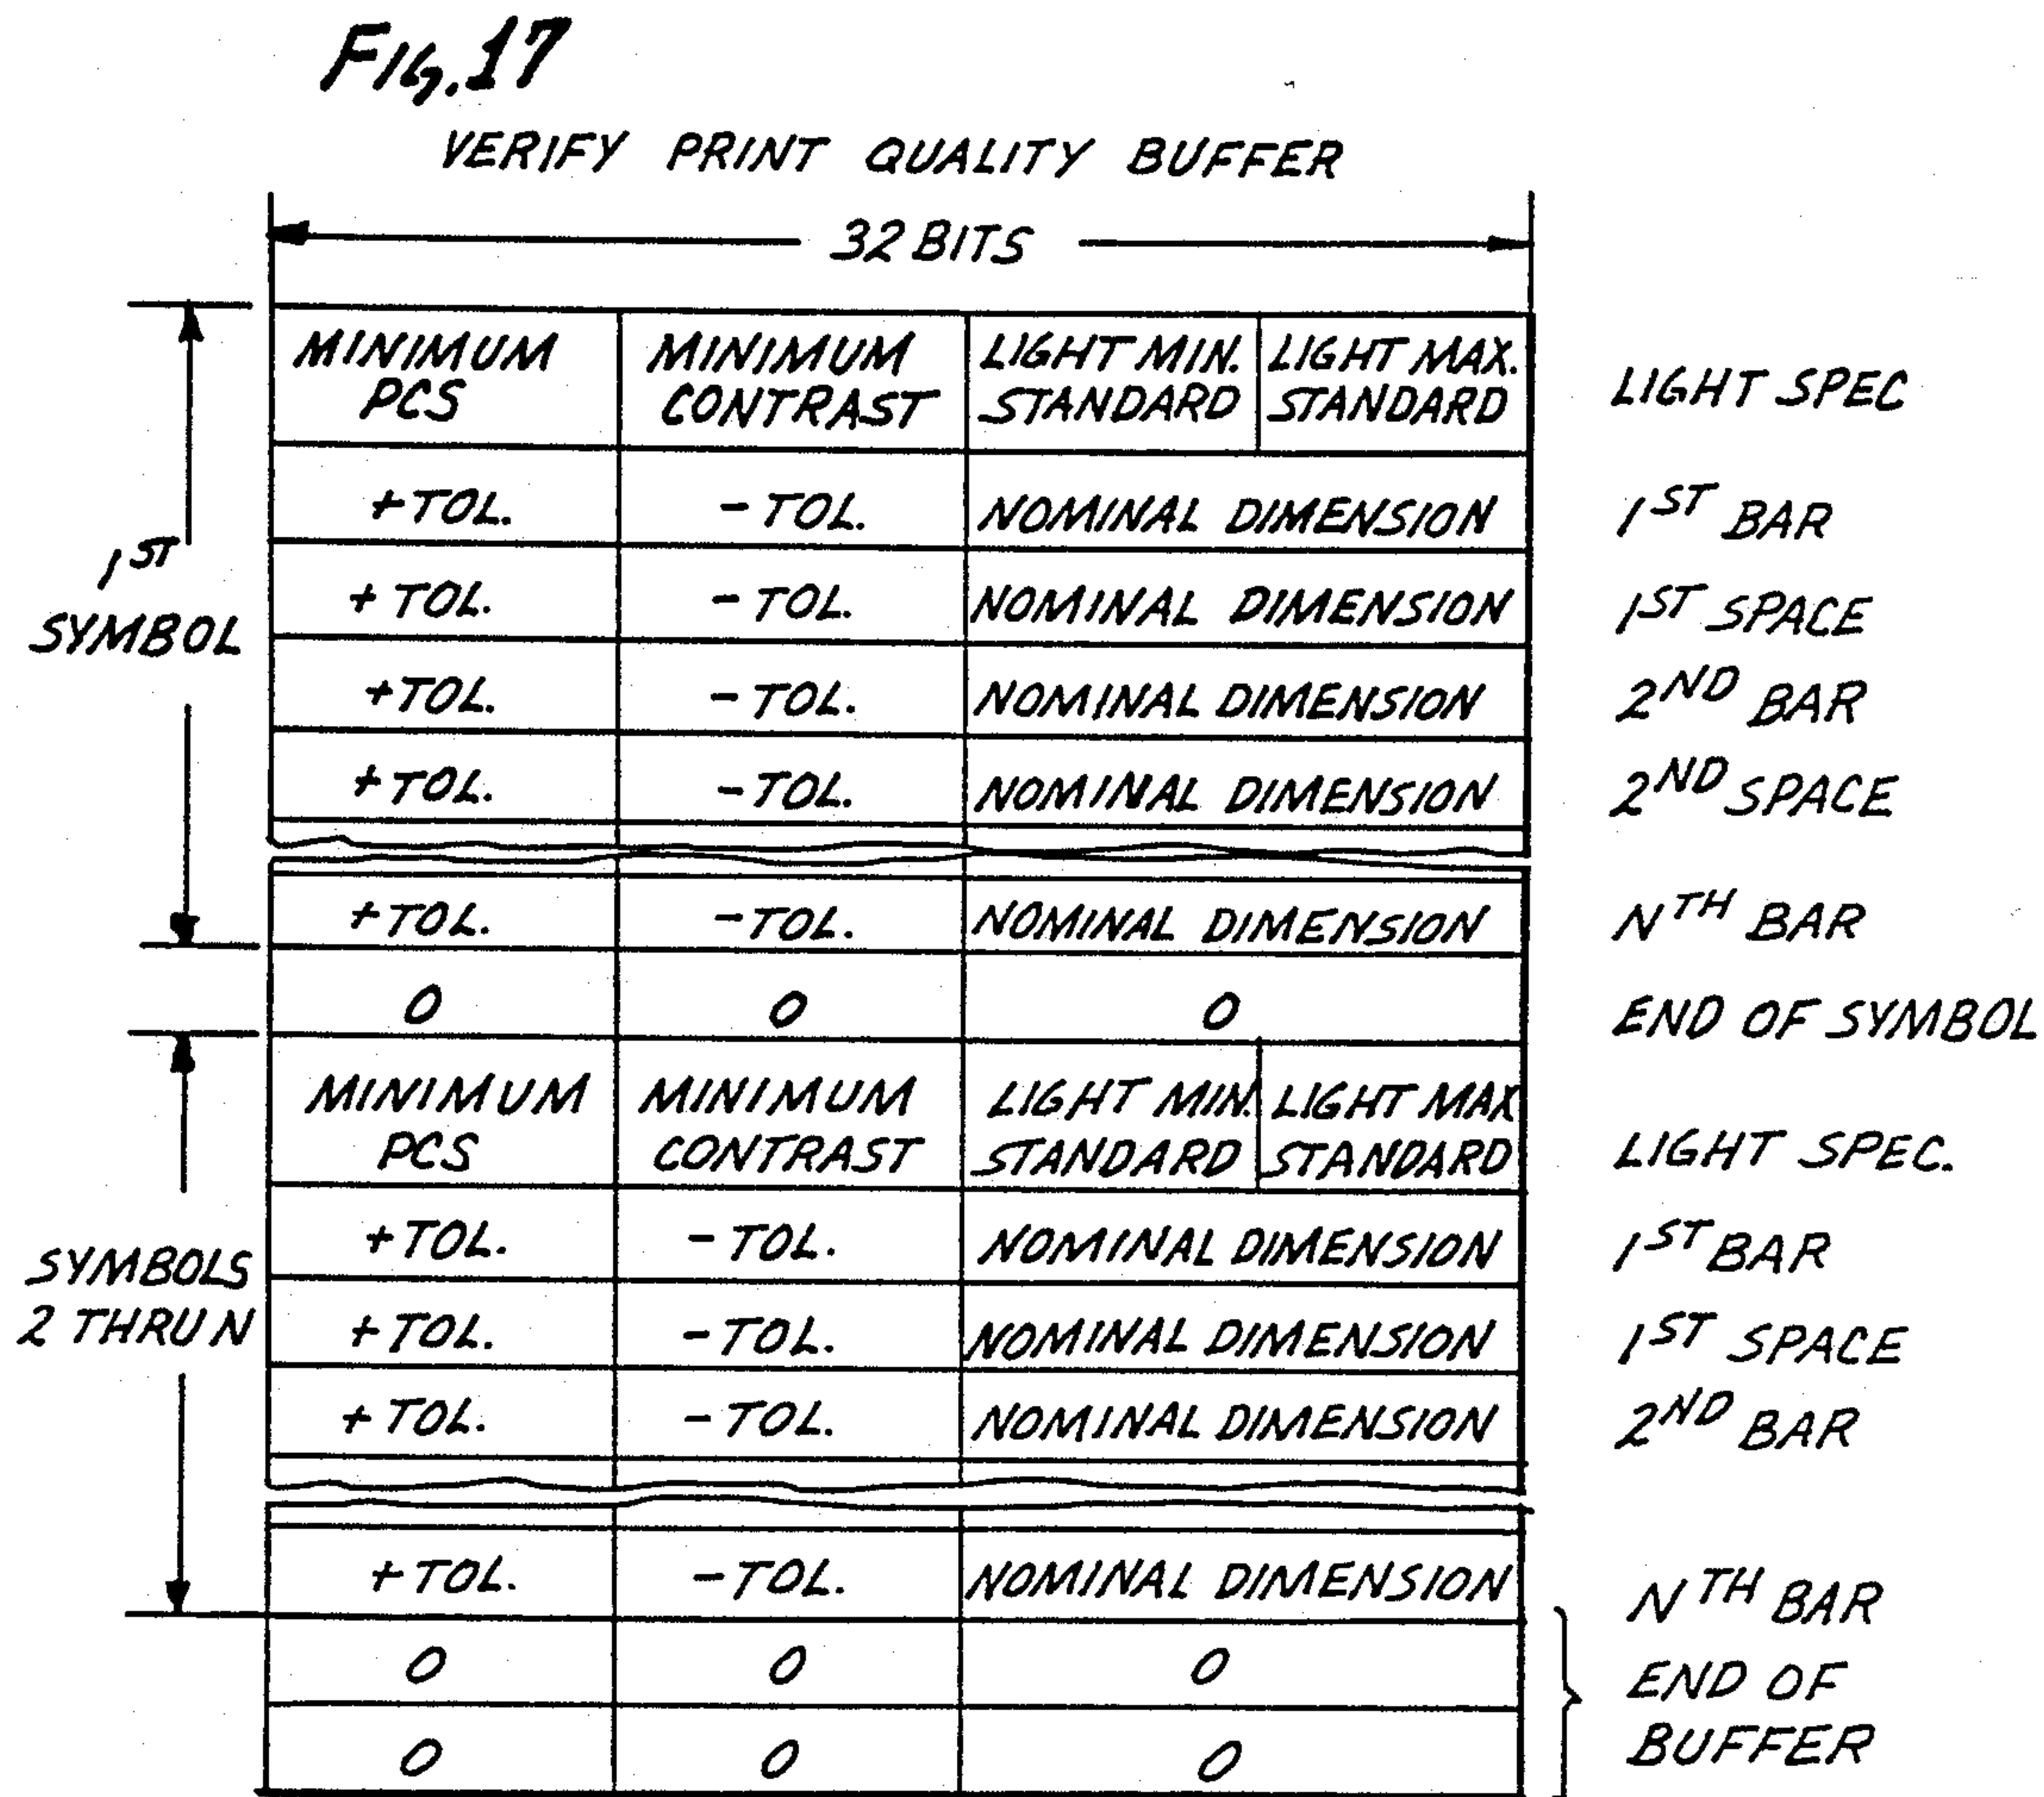 FIG. 17
VERIFY PRINT QUALITY BUFFER
32 BITS
MINIMUM PCS MINIMUM CONTRAST LIGHT MIN. STANDARD LIGHT MAX. STANDARD LIGHT SPEC
+TOL. -TOL. NOMINAL DIMENSION 1ST BAR
1ST SYMBOL
+TOL. -TOL. NOMINAL DIMENSION 1ST SPACE
+TOL. -TOL. NOMINAL DIMENSION 2ND BAR
+TOL. -TOL. NOMINAL DIMENSION 2ND SPACE
+TOL. -TOL. NOMINAL DIMENSION NTH BAR
0 0 0 END OF SYMBOL
MINIMUM PCS MINIMUM CONTRAST LIGHT MIN. STANDARD LIGHT MAX STANDARD LIGHT SPEC.
+TOL. -TOL. NOMINAL DIMENSION 1ST BAR
SYMBOLS 2 THRU N
+TOL. -TOL. NOMINAL DIMENSION 1ST SPACE
+TOL. -TOL. NOMINAL DIMENSION 2ND BAR
+TOL. -TOL. NOMINAL DIMENSION NTH BAR
0 0 0 END OF
0 0 0 BUFFER